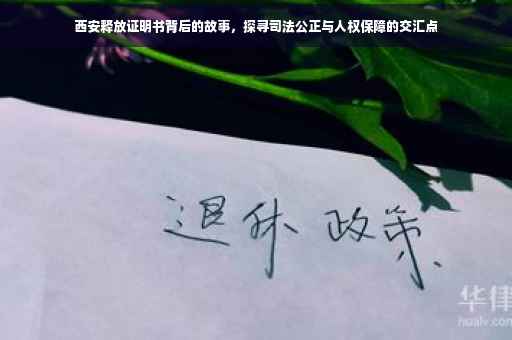 西安释放证明书背后的故事，探寻司法公正与人权保障的交汇点
退休 政策
华律
hualv.com